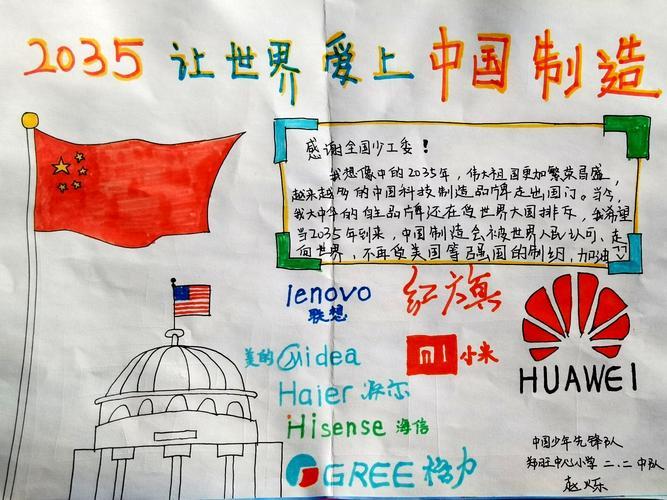 2035 让世界爱上中国制造
感谢全国少工委！
我想像中的2035年，伟大祖国更加繁荣昌盛，
越来越多的中国科技制造品牌走出国门。当今，
我大中华的自主品牌还在受世界大国排斥，我希望
当2035年到来，中国制造会被世界人民认可、走
向世界，不再受美国等强国的制约，加油
lenovo
联想
红旗
美的 Midea
mi 小米
HUAWEI
Haier 海尔
Hisense 海信
GREE 格力
中国少年先锋队
郑旺中心小学 二.二中队
赵烁